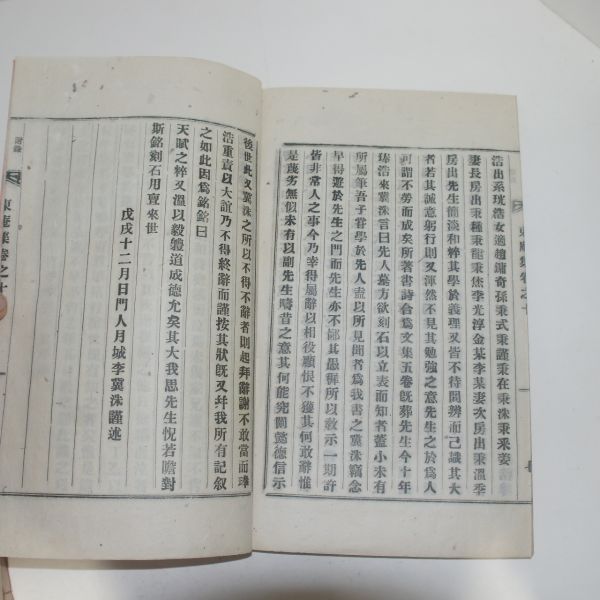 浩出系珖浩女適趙鏞奇孫秉式秉謹秉在秉洙秉采妾
妻長房出秉種秉龍秉烋李光淳金某李某妻次房出秉溫季
房出先生簡淡和粹其學於義理又皆不待問辨而己識其大
者若其誠意躬行則又渾然不見其勉強之意先生之於爲人
可謂不勞而成矣所著書詩合爲文集五卷旣葬先生今十年
珠浩來冀洙言曰先人墓方欲刻石以立表而知者蓋小未有
所屬筆吾子嘗學於先人盍以所見聞者爲我書之冀洙竊念
早得遊於先生之門而先生亦不鄙其愚穉所以敎示一期許
皆非常人之事今乃幸得屬辭以相役顧恨不獲其何敢辭惟
是蔑劣無似未有以副先生疇昔之意其何能究闡懿德信示
後世此又冀洙之所以不得不辭者則起拜辭謝不敢當而珠
浩重責以大誼乃不得終辭而謹按其狀旣又幷我所有記叙
之如此因爲銘銘曰
天賦之粹又溫以毅盤道成德允矣其大我思先生怳若瞻對
斯銘刻石用賁來世
戊戌十二月日門人月城李冀洙謹述
附錄
東庵集卷之十